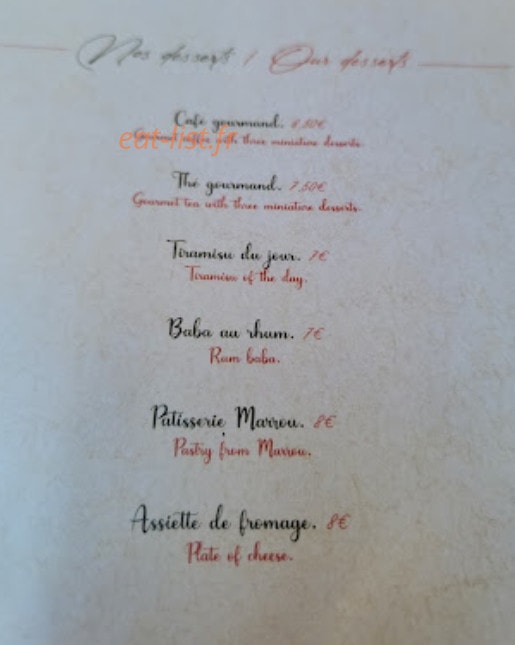 Nos desserts / Our desserts
Café gourmand. 6,50€
eat-list.fr
with three miniature desserts.
Thé gourmand. 7,50€
Gourmet tea with three miniature desserts.
Tiramisu du jour. 7€
Tiramisu of the day.
Baba au rhum. 7€
Rum baba.
Pâtisserie Marrou. 8€
Pastry from Marrou.
Assiette de fromage. 8€
Plate of cheese.